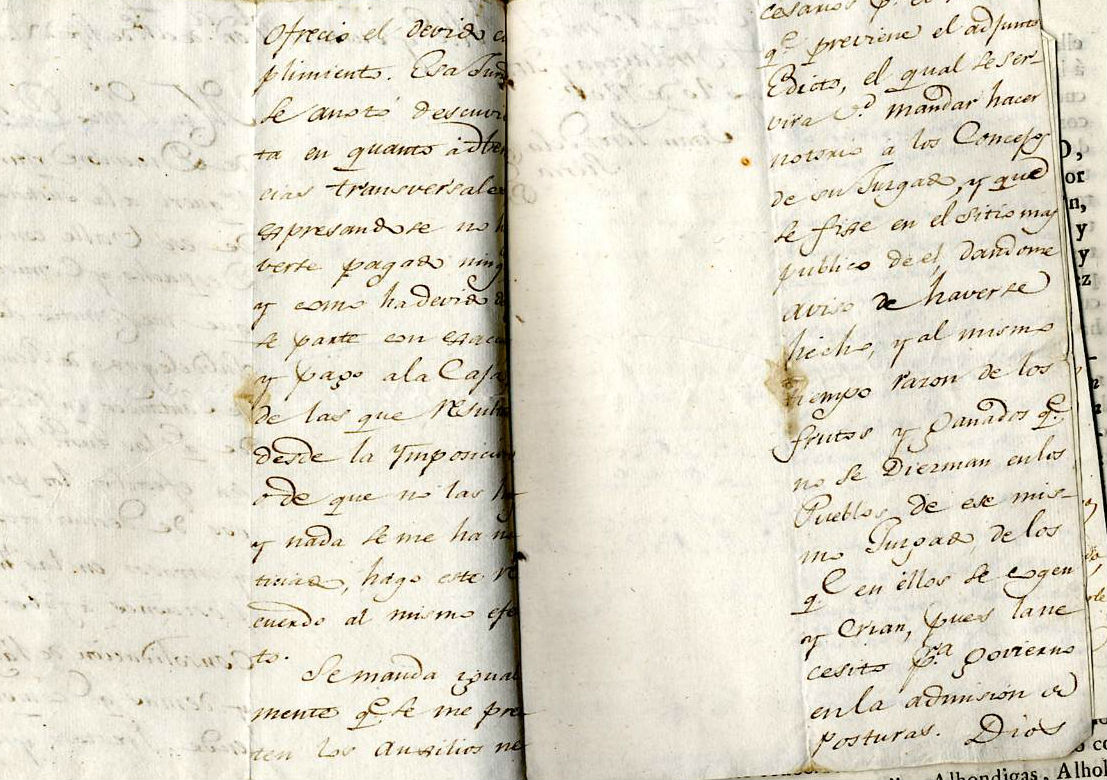 ofrecio el devido c
plimiento. Esa Jur
se anotó descuvi
ta en quanto ad ber
cias transversales
espresandose no h
verse pagado ning
y como ha devido d
se parte con esac
y pago a la Caja
de las que resulte
desde la Ymposicion
ó de que no las h
y nada se me ha no
ticiado, hago este re
cuerdo al mismo efe
to.
Se manda igual
mente qe. se me pres
ten los Ausilios ne
cesarios p.
qe. previene el adjunto
Edicto, el qual se ser-
vira Vd mandar hacer
notorio á los Concejos
de su Juzgado, y que
se fixe en el sitio mas
publico de el, dandome
aviso de haverse
hecho, y al mismo
tiempo razon de los
frutos y ganados qe.
no se Diezman en los
Pueblos de ese mis-
mo Juzgado, de los
qe. en ellos se cogen
y Crian, pues la ne
cesito pra. govierno
en la admision de
Posturas. Dios
O,
or
n,
y
y
ez
Alhondigas, Alhol